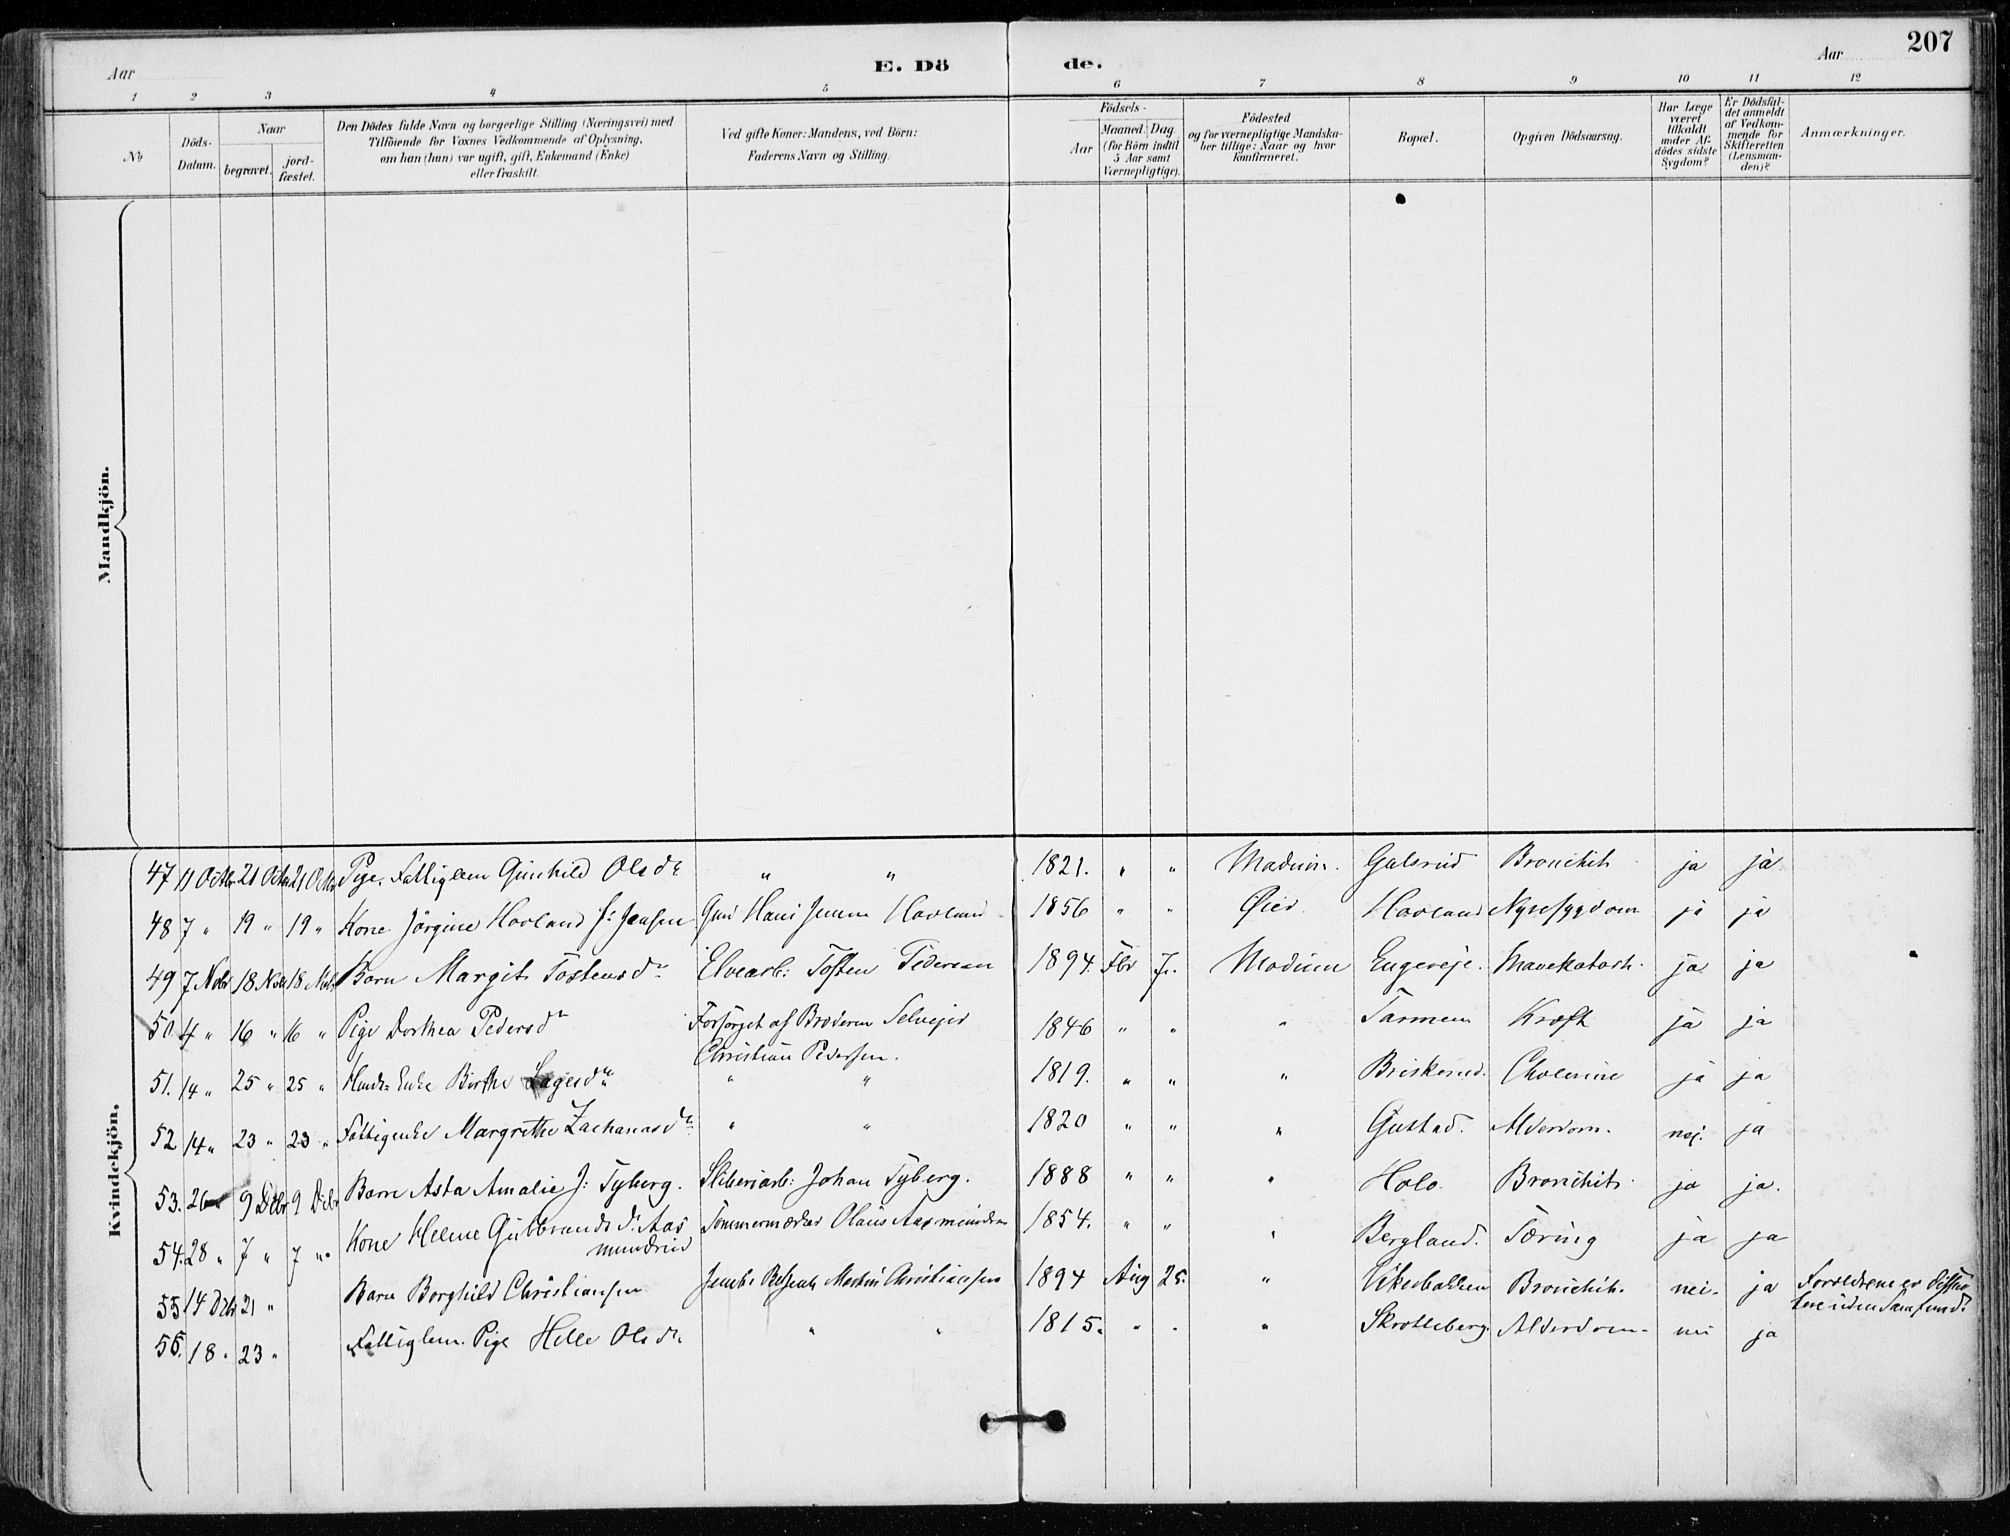 207
Aar
E. Dö
de.
Aar
1 2 3 4 5 6 7 8 9 10 11 12
No
Döds-
Datum.
Naar
begravet.
jord-
fæstet.
Den Dödes fulde Navn og borgerlige Stilling (Næringsvei) med
Tilföiende for Voxnes Vedkommende af Oplysning,
om han (hun) var ugift, gift, Enkemand (Enke)
eller fraskilt.
Ved gifte Koner: Mandens, ved Börn:
Faderens Navn og Stilling.
Födsels-
Aar
Maaned. Dag
(for Börn indtil
5 Aar samt
Værnepligtige).
Födested
og for værnepligtige Mandska-
ber tillige: Naar og hvor
konfirmeret.
Bopæl.
Opgiven Dödsaarsag.
Har Læge
været
tilkaldt
under Af-
dödes sidste
Sygdom?
Er Dödsfal-
det anmeldt
af Vedkom-
mende for
Skifteretten
(Lensman-
den)?
Anmærkninger.
Mandkjön.
Kvindekjön.
47 11 Octbr 21 Octbr 21 Octbr Pige. Fattiglem Gunhild Olsdr " " 1821. " " Modum. Galsrud Bronchit ja ja
48 7 " 19 " 19 " Kone Jörgine Hovland f: Jensen Hans Jensen Hovland 1856 " " Öier Hovland Nyresygdom ja ja
49 7 Nobr 18 Nobr 18 Nobr Barn Margit Tostensdr Elvearb: Tosten Pedersen 1894. Fbr 7. Modum Engereje. Mavekatarh. ja ja
50. 4 " 16 " 16 " Pige Dorthea Pedersdr Forsörget af Broderen Selvejer 1846 " " " Kræft ja ja
Christian Pedersen.
51. 14 " 25 " 25 " Enke Birthe " " 1819. " " " Briskerud. Cholerine ja ja
52 14 " 23 " 23 " Fattigenke Margrethe Zachariasdr " " 1820 " " " Gustad. Alderdom. nej. ja
53. 26 9 Dcbr 9 Dcbr Barn Asta Amalie J: Tyberg. Sliberiarb: Johan Tyberg. 1888 " " " Holo Bronchit. ja ja.
54. 28 " 7 " 7 " Kone Helene Gulbrandsdr Aas- Tommermærker Olaus Aasmundrud 1854. " " " Bergland. Tæring ja ja
mundrud
55 14 Dcbr 21 " Barn Borghild Christiansen Martin Christiansen 1894 Aug 25. " Vikerbakken Bronchit. nei. ja Forældrene er dissen-
tere uden Samfund.
56. 18. 23 " Fattiglem. Pige Helle Olsdr " " 1815. " " " Skrotleberg. Alderdom nei ja